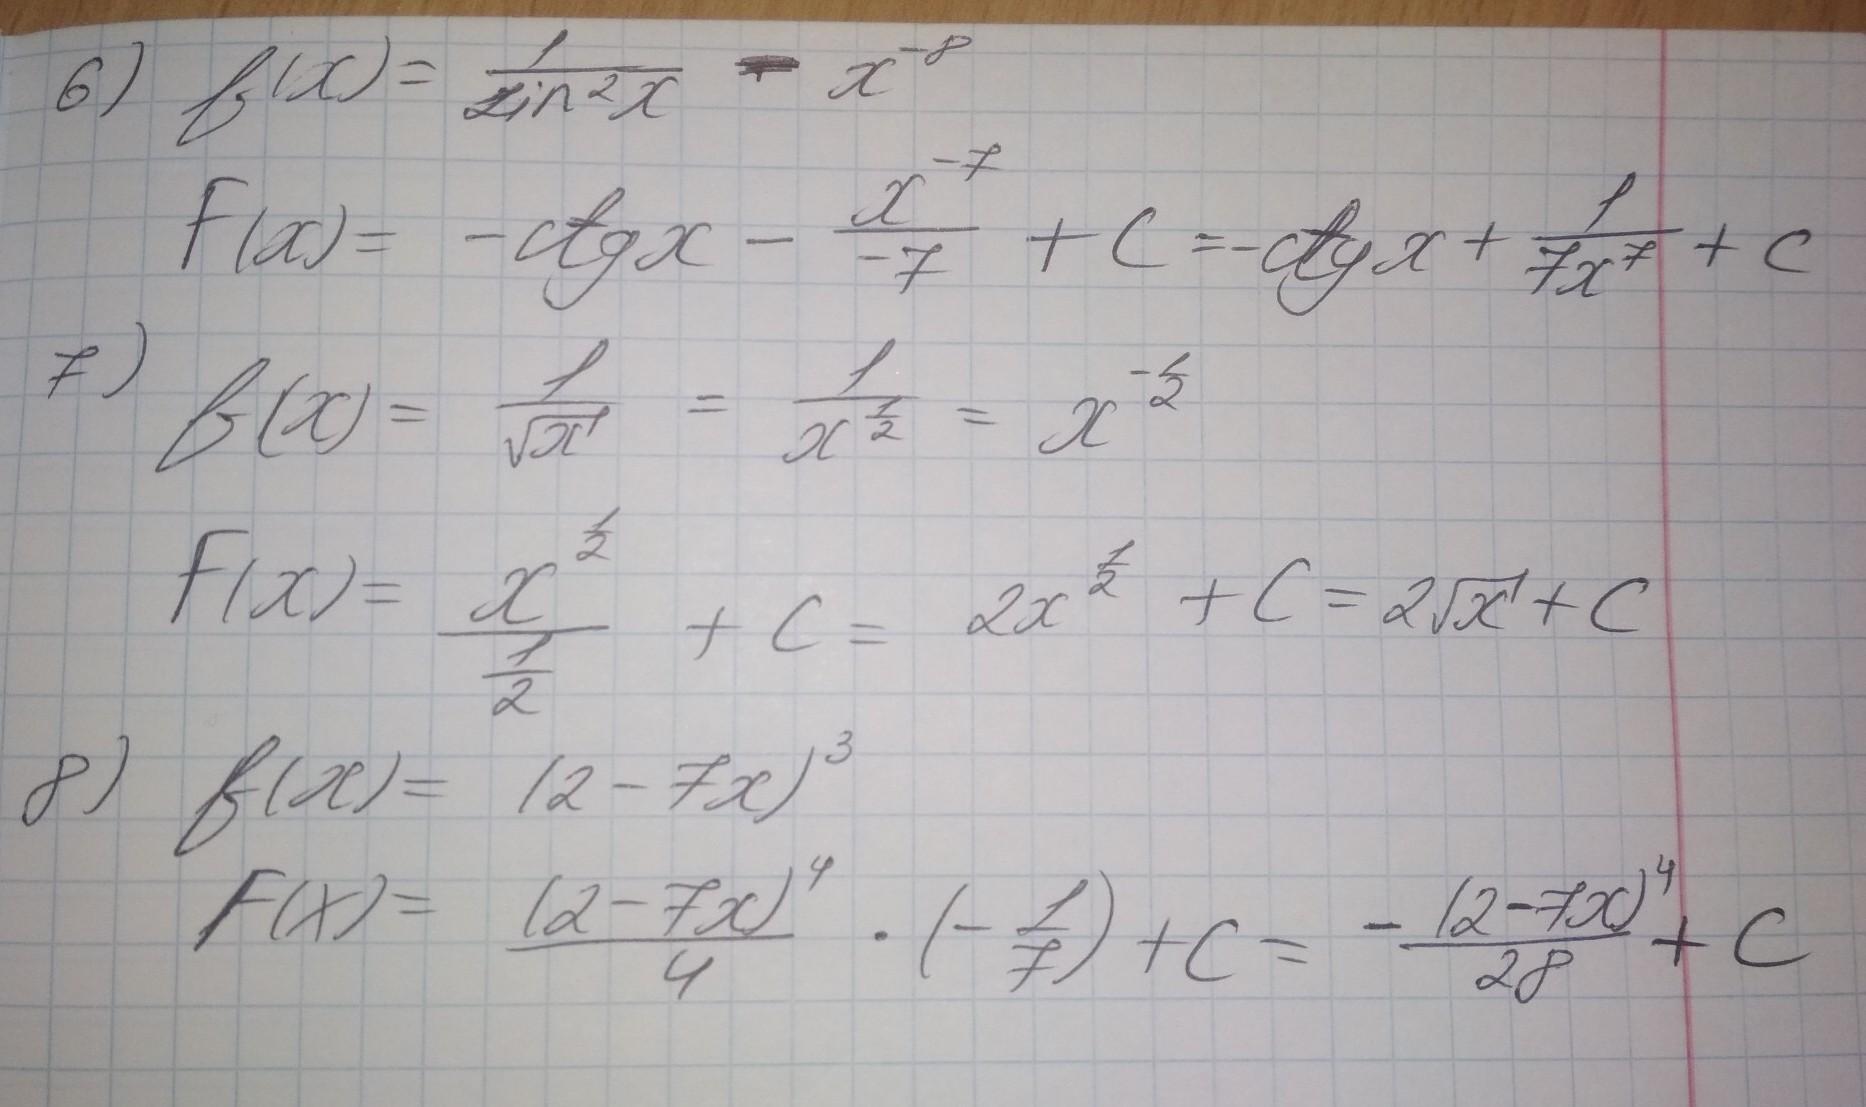 6) f(x) = 1/sin²x - x⁻⁸
F(x) = -ctgx - x⁻⁷/-7 + C = -ctgx + 1/7x⁷ + C
7) f(x) = 1/√x = 1/x^(1/2) = x^(-1/2)
F(x) = x^(1/2)/(1/2) + C = 2x^(1/2) + C = 2√x + C
8) f(x) = (2-7x)³
F(x) = (2-7x)⁴/4 · (-1/7) + C = -(2-7x)⁴/28 + C